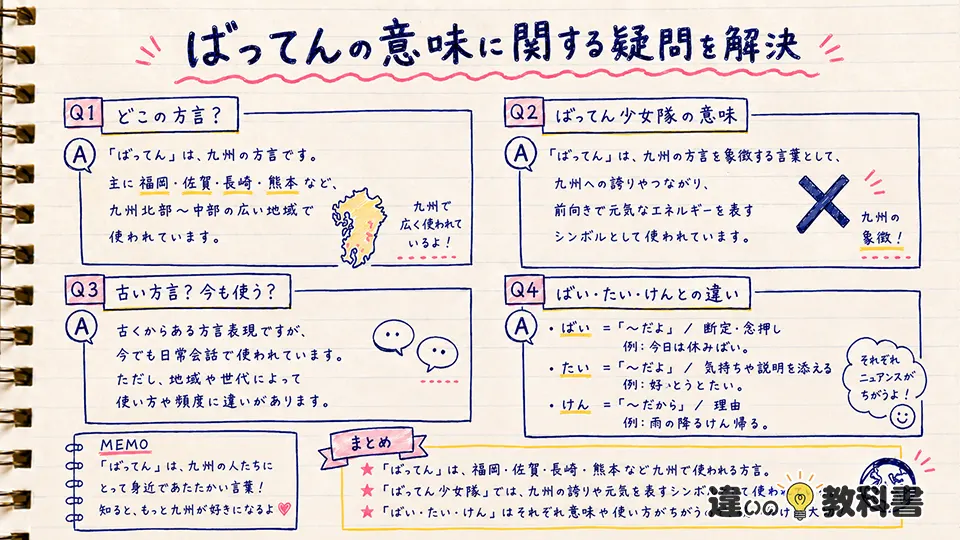 ばってんの意味に関する疑問を解決
Q1 どこの方言?
A 「ばってん」は、九州の方言です。
主に 福岡・佐賀・長崎・熊本 など、
九州北部~中部の広い地域で
使われています。
九州で
広く使われて
いるよ!
Q2 ばってん少女隊の意味
A 「ばってん」は、九州の方言を象徴する言葉として、
九州への誇りやつながり、
前向きで元気なエネルギーを表す
シンボルとして使われています。
九州の
象徴!
Q3 古い方言?今も使う?
A 古くからある方言表現ですが、
今でも日常会話で使われています。
ただし、地域や世代によって
使い方や頻度に違いがあります。
Q4 ばい・たい・けんとの違い
A ・ばい =「~だよ」/ 断定・念押し
例:今日は休みばい。
・たい =「~だよ」/ 気持ちや説明を添える
例:好いとうとたい。
・けん =「~だから」/ 理由
例:雨の降るけん帰る。
それぞれ
ニュアンスが
ちがうよ!
MEMO
「ばってん」は、九州の人たちに
とって身近であたたかい言葉!
知ると、もっと九州が好きになるよ
まとめ
★ 「ばってん」は、福岡・佐賀・長崎・熊本 など九州で使われる方言。
★ 「ばってん少女隊」では、九州の誇りや元気を表すシンボ
て使わ
★ 「ばい・たい・けん」はそれぞれ意味や使い方がちがう
け
大
違いの教科書